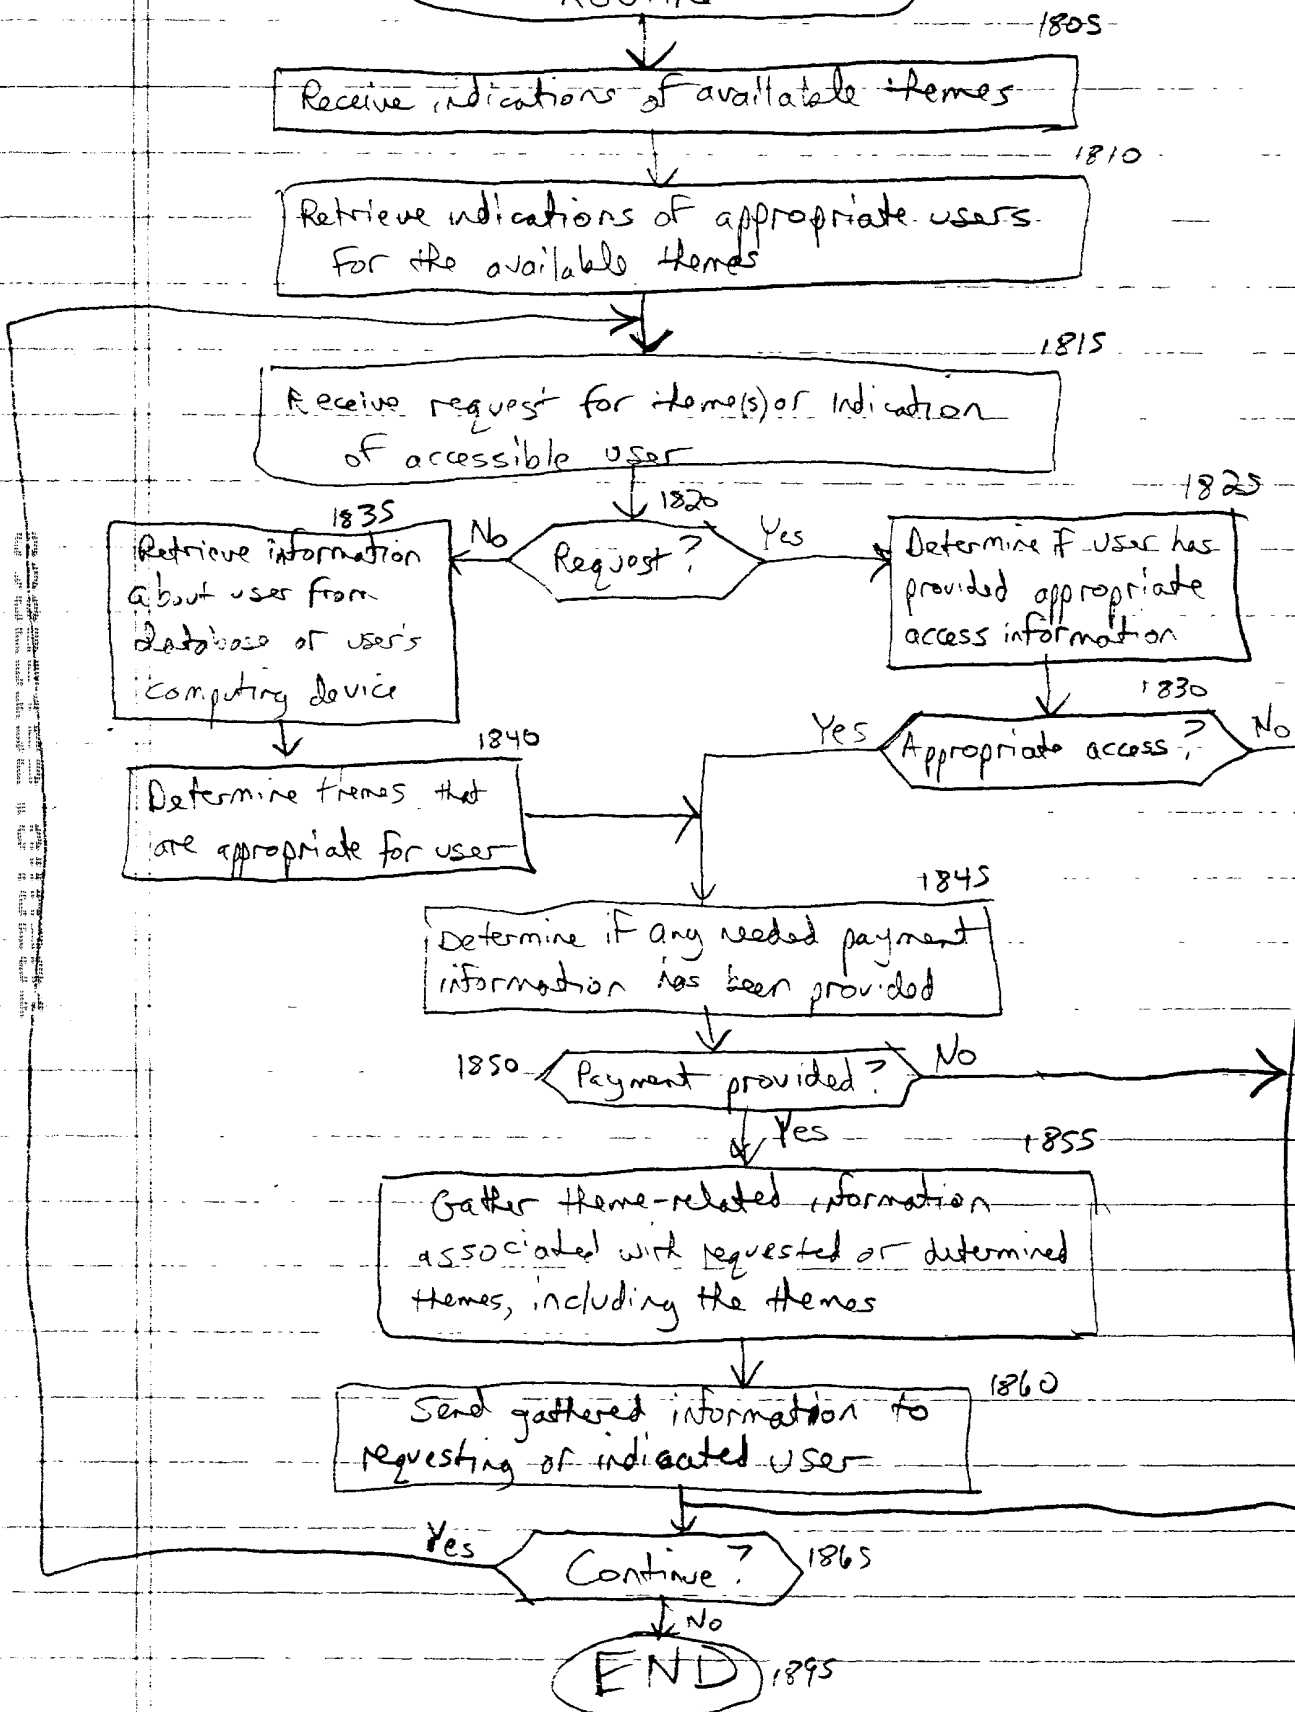 1805
Receive indications of available themes
1810
Retrieve indications of appropriate users
for the available themes
1815
Receive request for theme(s) or indication
of accessible user
1820
Request?
No
Yes
1835
Retrieve information
about user from
database or user's
computing device
1825
Determine if user has
provided appropriate
access information
1830
Appropriate access?
Yes
No
1840
Determine themes that
are appropriate for user
1845
Determine if any needed payment
information has been provided
1850
Payment provided?
No
Yes
1855
Gather theme-related information
associated with requested or determined
themes, including the themes
1860
Send gathered information to
requesting or indicated user
Yes
Continue?
1865
No
END
1895